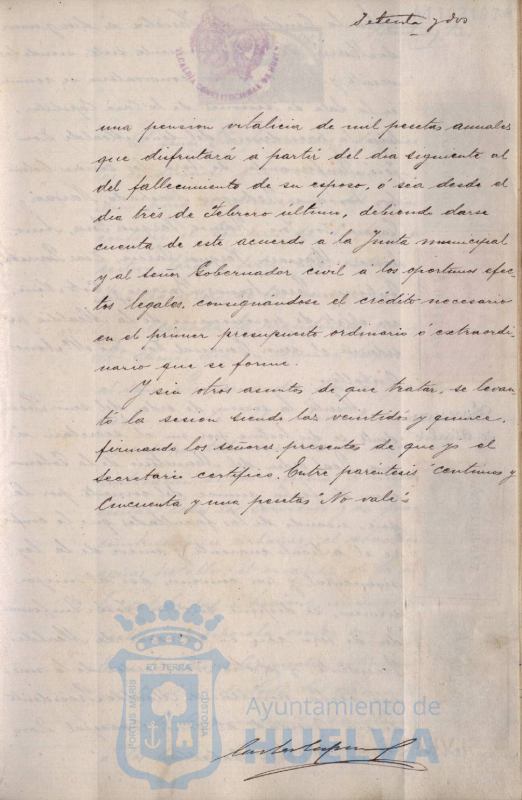 Setenta y dos
ALCALDÍA CONSTITUCIONAL DE
una pension vitalicia de mil pesetas anuales
que disfrutará á partir del dia siguiente al
del fallecimiento de su esposo, ó sea desde el
dia tres de Febrero último, debiendo darse
cuenta de este acuerdo á la Junta municipal
y al señor Gobernador civil á los oportunos efec-
tos legales, consignándose el crédito necesario
en el primer presupuesto ordinario ó extraordi-
nario que se forme.
Y sin otros asuntos de que tratar, se levan-
tó la sesion siendo las veintidos y quince,
firmando los señores presentes de que yo el
Secretario certifico. Entre paréntesis "centimos y
Cincuenta y una pesetas" No vale".
PORTUS MARIS
ET TERRÆ
CUSTODIA
Ayuntamiento de
HUELVA